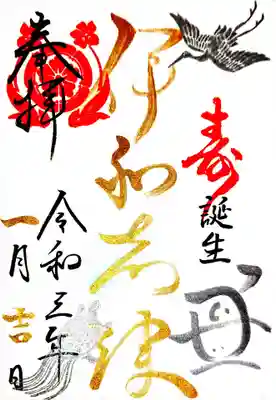 奉拝
壽誕生
伊和志津
令和三年
一月吉日